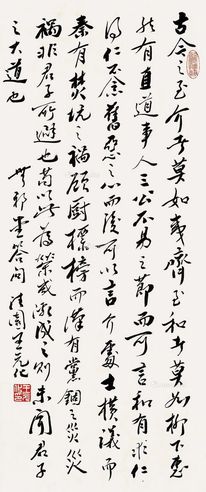 古今之至介者莫如夷齊至和者莫如柳下惠
然有直道事人三公不易之節而可言和有求仁
得仁不念舊惡之心而後可以言介處士橫議而
秦有焚坑之禍顧廚標榜而漢有黨錮之災災
禍非君子所避也苟以此為榮或激成之則未聞君子
之大道也 無邪堂答問 清園王元化